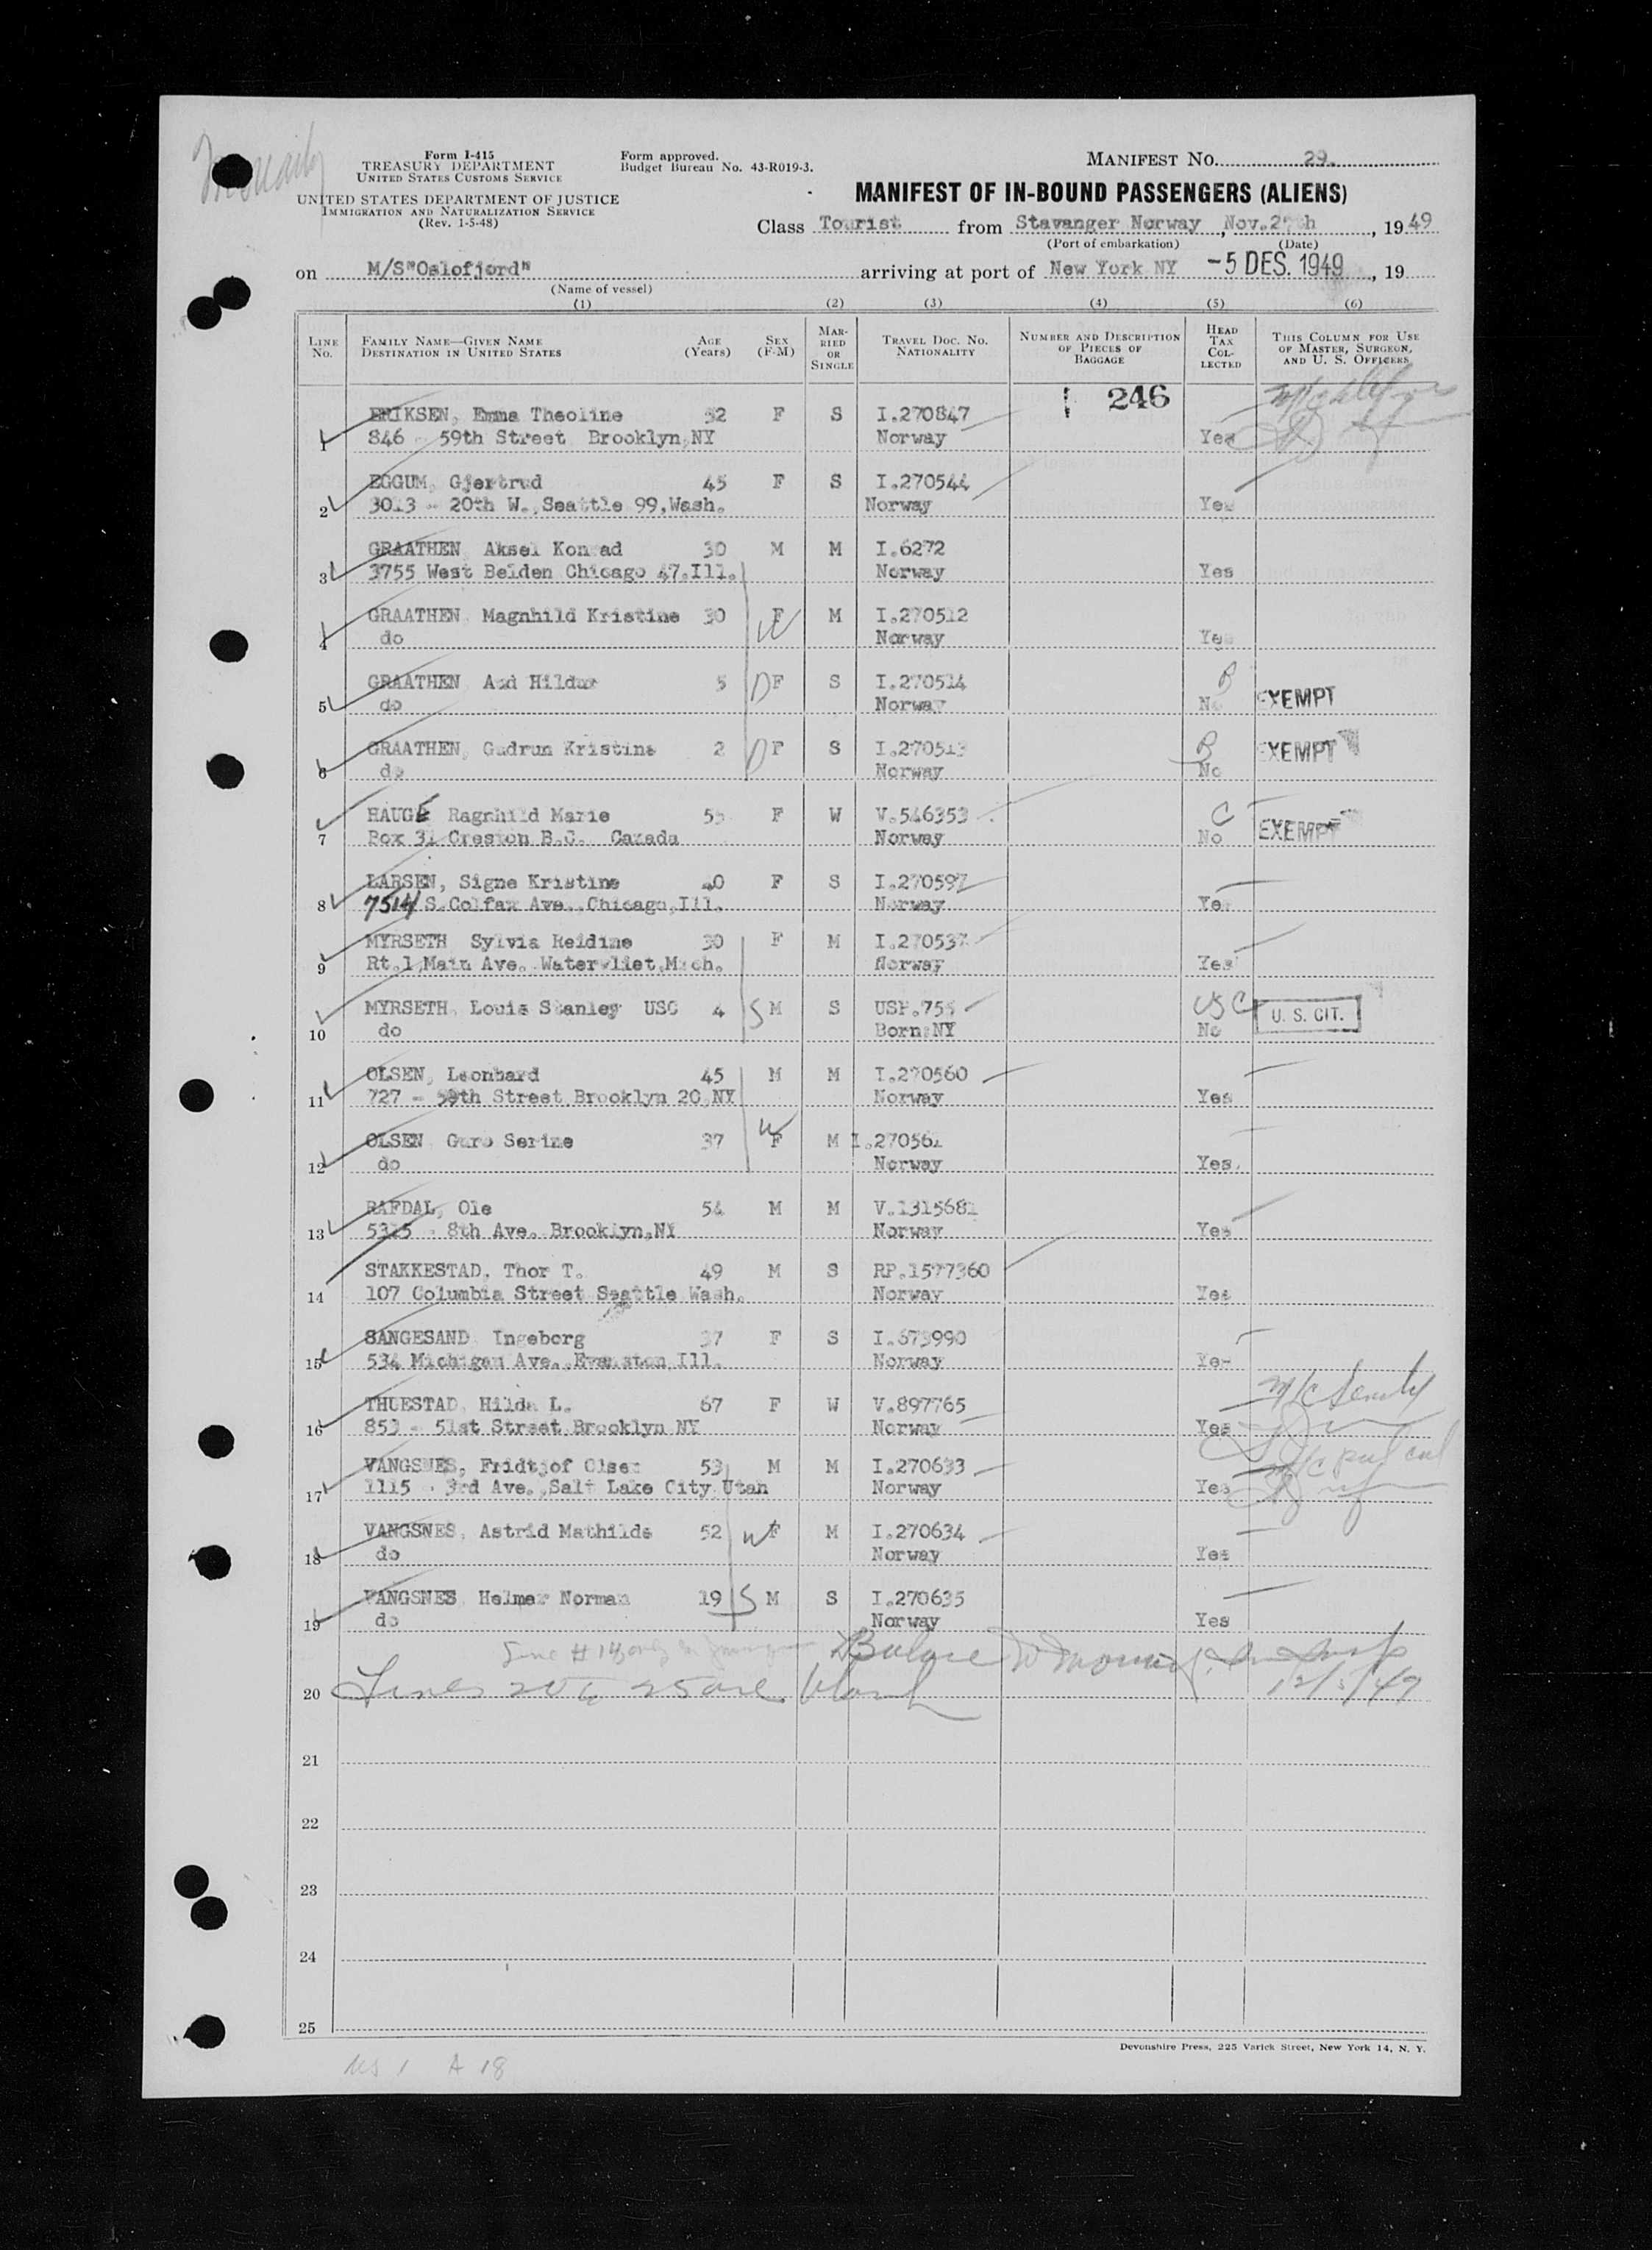 Form I-415
TREASURY DEPARTMENT
UNITED STATES CUSTOMS SERVICE
UNITED STATES DEPARTMENT OF JUSTICE
IMMIGRATION AND NATURALIZATION SERVICE
(Rev. 1-5-48)
Form approved.
Budget Bureau No. 43-R019-3.
MANIFEST NO. 29.
MANIFEST OF IN-BOUND PASSENGERS (ALIENS)
Class Tourist from Stavanger Norway, Nov. , 1949
(Port of embarkation) (Date)
on M/S"Oslofjord" arriving at port of New York NY -5 DES. 1949, 19
(Name of vessel)
(1) (2) (3) (4) (5) (6)
LINE NO. FAMILY NAME—GIVEN NAME DESTINATION IN UNITED STATES AGE (Years) SEX (F-M) MARRIED OR SINGLE TRAVEL DOC. NO. NATIONALITY NUMBER AND DESCRIPTION OF PIECES OF BAGGAGE HEAD TAX COLLECTED THIS COLUMN FOR USE OF MASTER, SURGEON, AND U. S. OFFICERS
246
ERIKSEN, Emma Theoline 32 F S I.270847
1 846 - 59th Street Brooklyn,NY Norway Yes
EGGUM, Gjertrud 45 F S I.270544
2 3013 - 20th W.,Seattle 99,Wash. Norway Yes
GRAATHEN Aksel Konrad 30 M M I.6272
3 3755 West Belden Chicago 47.Ill. Norway Yes
GRAATHEN, Magnhild Kristine 30 F W M I.270512
4 do Norway Yes
GRAATHEN Aud Hildur 5 D F S I.270514 B
5 do Norway No EXEMPT
GRAATHEN, Gudrun Kristine 2 D F S I.270513 B EXEMPT
6 do Norway No
HAUGE Ragnhild Marie 55 F W V.546353 C
7 Box 31 Creston B.C. Canada Norway No EXEMPT
LARSEN, Signe Kristine 40 F S I.270597
8 7514 S.Colfax Ave.,Chicago,Ill. Norway Yes
MYRSETH Sylvia Reidine 30 F M I.270537
9 Rt.1,Main Ave. Watervliet,Mich. Norway Yes
MYRSETH, Louis Stanley USC 4 S M S USP.755 USC U. S. CIT.
10 do Born:NY No
OLSEN, Leonhard 45 M M I.270560
11 727 - 59th Street,Brooklyn 20,NY Norway Yes
OLSEN Guro Serine 37 W F M I.270561
12 do Norway Yes.
RAFDAL, Ole 54 M M V.1315681
13 5315 - 8th Ave. Brooklyn,NY Norway Yes
STAKKESTAD, Thor T. 49 M S RP.1577360
14 107 Columbia Street Seattle Wash. Norway Yes
SANGESAND Ingeborg 37 F S I.673990
15 534 Michigan Ave.,Evanston Ill. Norway Yes
THUESTAD, Hilda L. 67 F W V.897765
16 853 - 51st Street,Brooklyn NY Norway Yes
VANGSNES, Fridtjof Olsen 53 M M I.270633
17 1115 - 3rd Ave.,Salt Lake City Utah Norway Yes
VANGSNES, Astrid Mathilde 52 W F M I.270634
18 do Norway Yes
VANGSNES Helmer Norman 19 S M S I.270635
19 do Norway Yes
Line #14 only
20 Lines 20 to 25 are blank 12/5/49
21
22
23
24
25
Devonshire Press, 225 Varick Street, New York 14, N. Y.
US 1 A 18